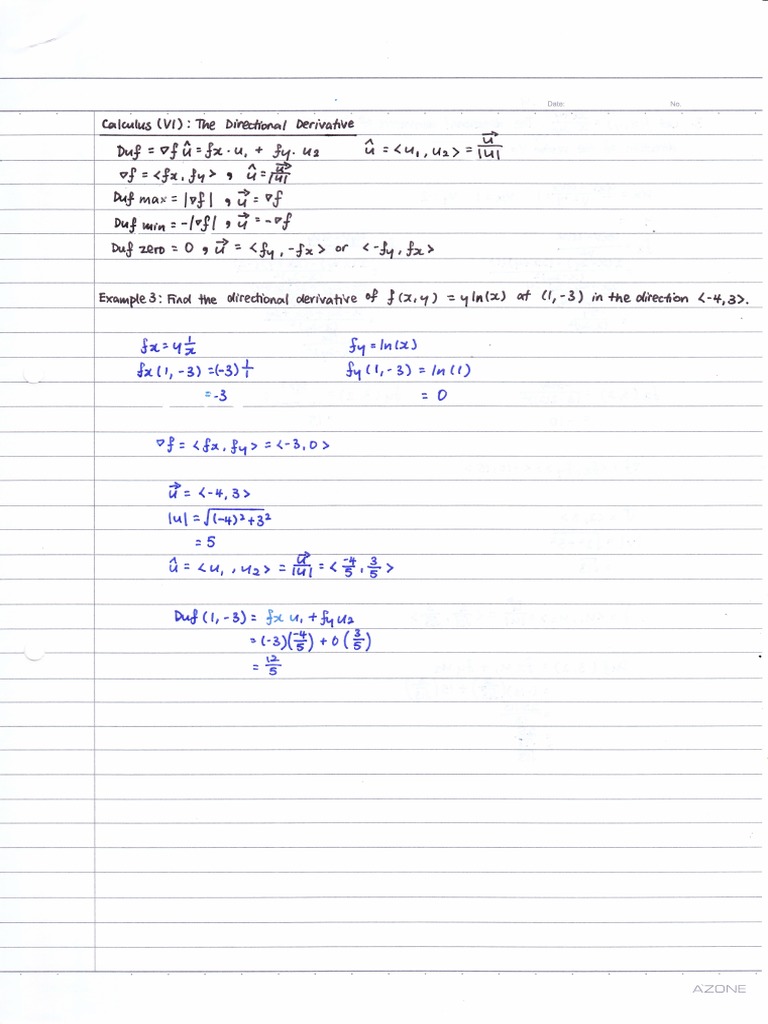 Date: No.
Calculus (VI): The Directional Derivative
Duf = ∇f û = fx · u₁ + fy · u₂ û = <u₁, u₂> = u⃗/|u|
∇f = <fx, fy> , û = u⃗/|u|
Duf max = |∇f| , u⃗ = ∇f
Duf min = -|∇f| , u⃗ = -∇f
Duf zero = 0 , u⃗ = <fy, -fx> or <-fy, fx>
Example 3: Find the directional derivative of f(x,y) = y ln(x) at (1,-3) in the direction <-4,3>.
fx = y 1/x fy = ln(x)
fx(1,-3) = (-3) 1/1 fy(1,-3) = ln(1)
= -3 = 0
∇f = <fx, fy> = <-3, 0>
u⃗ = <-4, 3>
|u| = √((-4)² + 3²)
= 5
û = <u₁, u₂> = u⃗/|u| = <-4/5, 3/5>
Duf(1,-3) = fx u₁ + fy u₂
= (-3)(-4/5) + 0(3/5)
= 12/5
AZONE